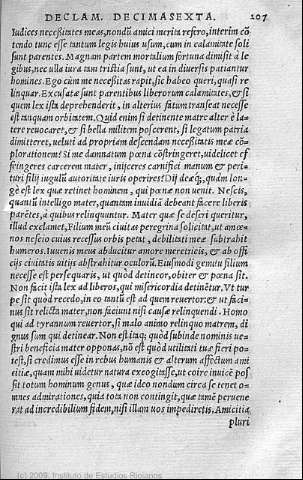 DECLAM. DECIMASEXTA. 207
Iudices necessitates meas, nondū amici merita refero, interim cō
tendo tunc esse tantum legis huius usum, cum in calamitate soli
sunt parentes. Magnam partem mortalium fortuna dimisit à le
gibus, nec ulla iura tam tristia sunt, ut ea in diuersis patiantur
homines. Ego cum me necessitas rapit, sic habeo queri, quasi re
linquar. Excusatæ sunt parentibus liberorum calamitates, & si
quem lex ista deprehenderit, in alterius fatum transeat necesse
est unquam orbitatem. Quid enim si detinente matre alter è la-
tere reuocaret, & si bella militem poscerent, si legatum patria
dimitteret, ueluti ad propriam descendam necessitatis meæ cō-
plorationem? Si me damnatum pœna cōstringeret, uidelicet ef
fringeres carcerem mater, inijceres carnifici manum & pertu-
ri filij iugulū autoritate iuris operires? Dij deæq́;, quàm lon-
gè est lex quæ retinet hominem, qui pœnæ non uenit. Nescis,
quantū intelligo mater, quantam inuidiā debeant facere liberis
parētes, à quibus relinquuntur. Mater quæ se deseri queritur,
illud exclamet, Filium meū ciuitas peregrina solicitat, ut amœ
nos nescio cuius recessus orbis petat, debilitati meæ subtrahit
humeros. Iuuenis meus abducitur amore meretricis, & ab offi
cijs ciuitatis istius abstrahitur oculorū. Eiusmodi gemitu filium
necesse est persequaris, ut quòd detineor, obiter & pœna sit.
Non facit ista lex ad liberos, qui misericordia detinētur. Vt tur
pe sit quòd recedo, in eo tantū est ad quem reuertor: & ut faci-
nus sit relicta mater, non faciunt nisi causæ relinquendi. Homo
qui ad tyrannum reuertor, si malo animo relinquo matrem, di
gnus sum qui detinear. Non est itaq; quòd subinde nominis ue-
stri beneficia mater opponas, nō est quòd utilitati tuæ fieri po-
test, si credimus esse in rebus humanis & alterum affectum ami
citiæ, quam mihi uidetur natura excogitasse, ut coire inuicē pos
sit totum hominum genus, quæ ideo nondum circa se tenet o-
mnes admirationes, quia tota non contingit, quæ tamē peruene
rat ad incredibilium fidem, nisi illam uos impediretis. Amicitia
pluri
(c) 2009, Instituto de Estudios Riojanos